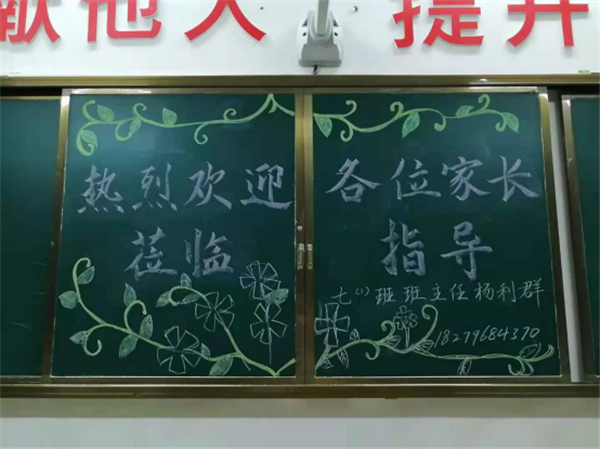 献他人 提升
热烈欢迎 各位家长
莅临 指导
七(1)班班主任杨利群
18279684370